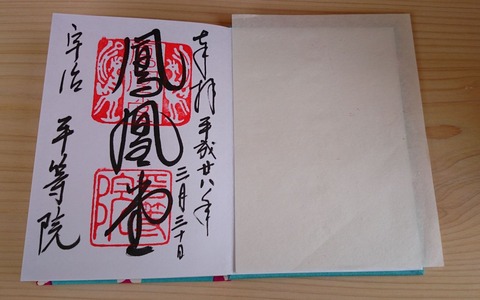 奉拝 平成廿八年
三月三十日
鳳凰堂
宇治 平等院